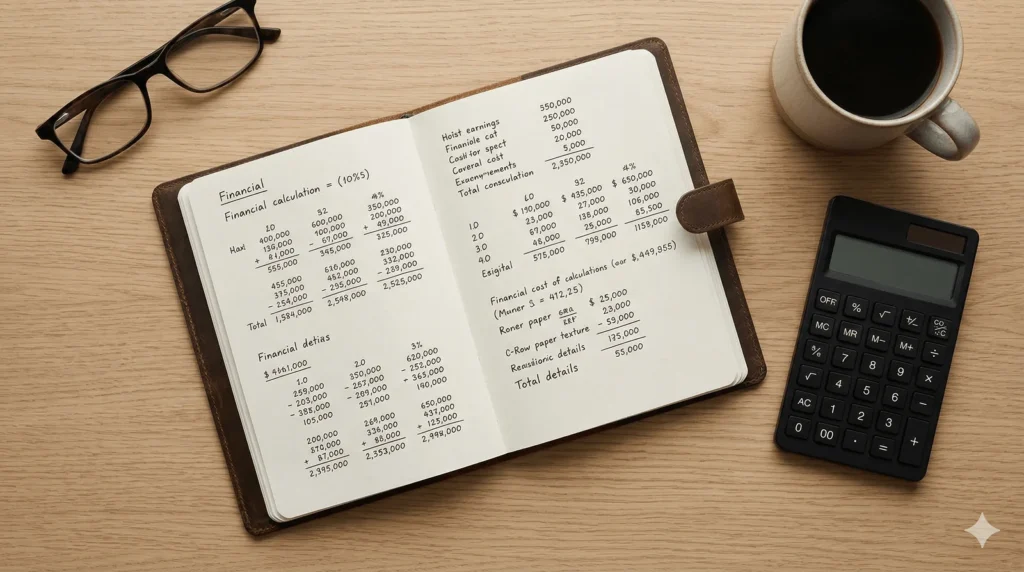 Financial
Financial calculation = (10%5)
1.0 32 4%
Haxl 400,000 600,000 350,000
130,000 - 100,000 200,000
+ 41,000 - 67,000 + 49,000
555,000 345,000 325,000
455,000 616,000 230,000
375,000 462,000 332,000
- 254,000 - 295,000 - 289,000
Total 1,584,000 2,548,000 2,525,000
Financial detias
$ 4661,000
1.0 2.0 3%
259,000 350,000 620,000
- 203,000 - 257,000 - 252,000
- 385,000 - 209,000 + 365,000
105,000 251,000 190,000
200,000 269,000 650,000
370,000 336,000 437,000
+ 87,000 + 88,000 + 125,000
2,395,000 2,353,000 2,998,000
Hoist earnings 550,000
Finaniole cat 250,000
Cashfor spect 50,000
Coveral cost 20,000
5,000
Total consculation 2,350,000
60 32 4%
1.0 $ 190,000 $ 435,000 $ 650,000
2.0 23,000 27,000 30,000
3.0 67,000 138,000 106,000
4.0 48,000 25,000 85,500
Esigital 575,000 798,000 1158,000
Financial cost of calculations (our $,449,955)
(Muner S = 412,25)
Roner paper $ 25,000
23,000
C-Row paper texture - 59,000
details 175,000
Total details 55,000
OFF % √ +/-
MC MR M- M+ ÷
% 7 8 9 ×
√ 4 5 6 -
AC 1 2 3 +
0 00 · =